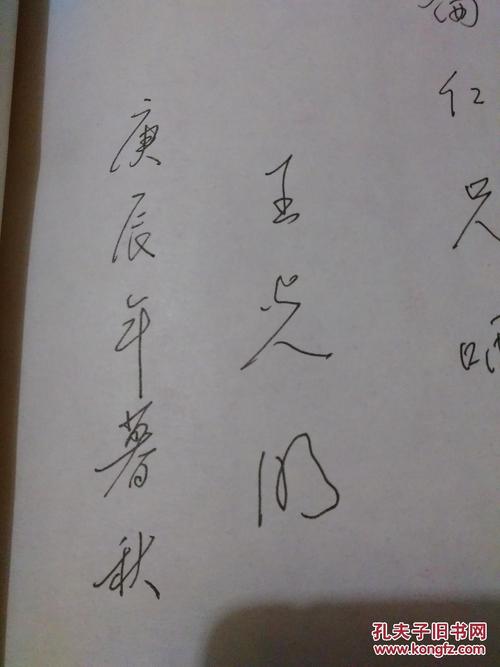 仁兄
王光明
庚辰年暮秋
孔夫子旧书网
www.kongfz.com